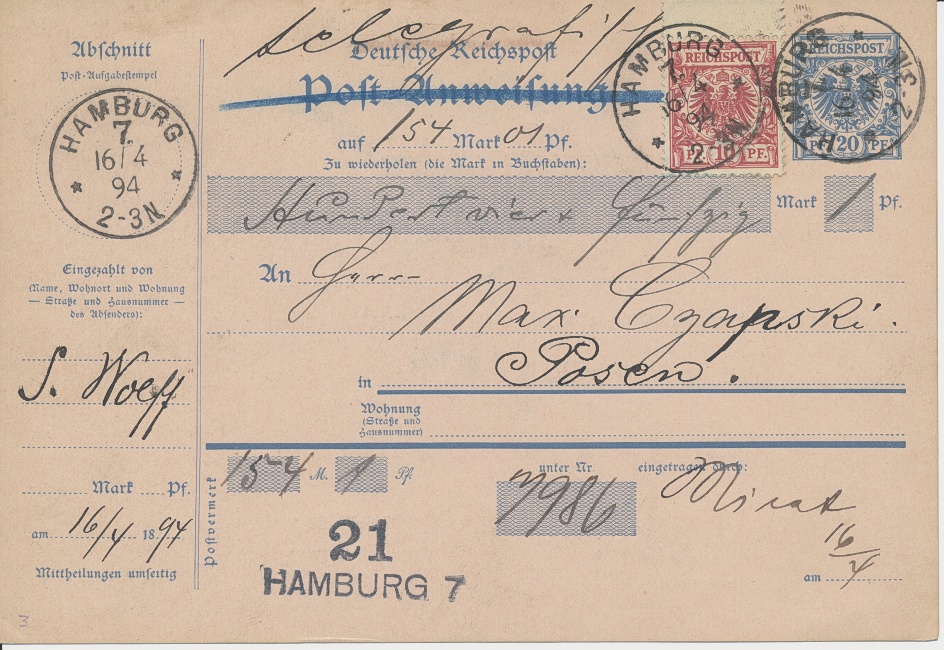 Abschnitt
Post-Aufgabestempel
HAMBURG
7.
16/4
94
2-3N
Eingezahlt von
(Name, Wohnort und Wohnung
— Straße und Hausnummer —
des Absenders):
S. Wolff
Mark Pf.
am 16/4 1894
Mittheilungen umseitig
3
telegrafisch
Deutsche Reichspost
Post-Anweisung
auf 154 Mark 01 Pf.
Zu wiederholen (die Mark in Buchstaben):
Hundert vier & fünfzig Mark 1 Pf.
HAMBURG
7.
16/4
94
2-3N
REICHSPOST
PF. 10 PF.
HAMBURG
7.
16/4
94
2-3N
REICHSPOST
PF. 20 PF.
An Herrn
Max Czapski.
in Posen.
Wohnung
(Straße und
Hausnummer)
Postvermerk
154 M. 1 Pf.
unter Nr. eingetragen durch:
7986
21
HAMBURG 7
am 16/4